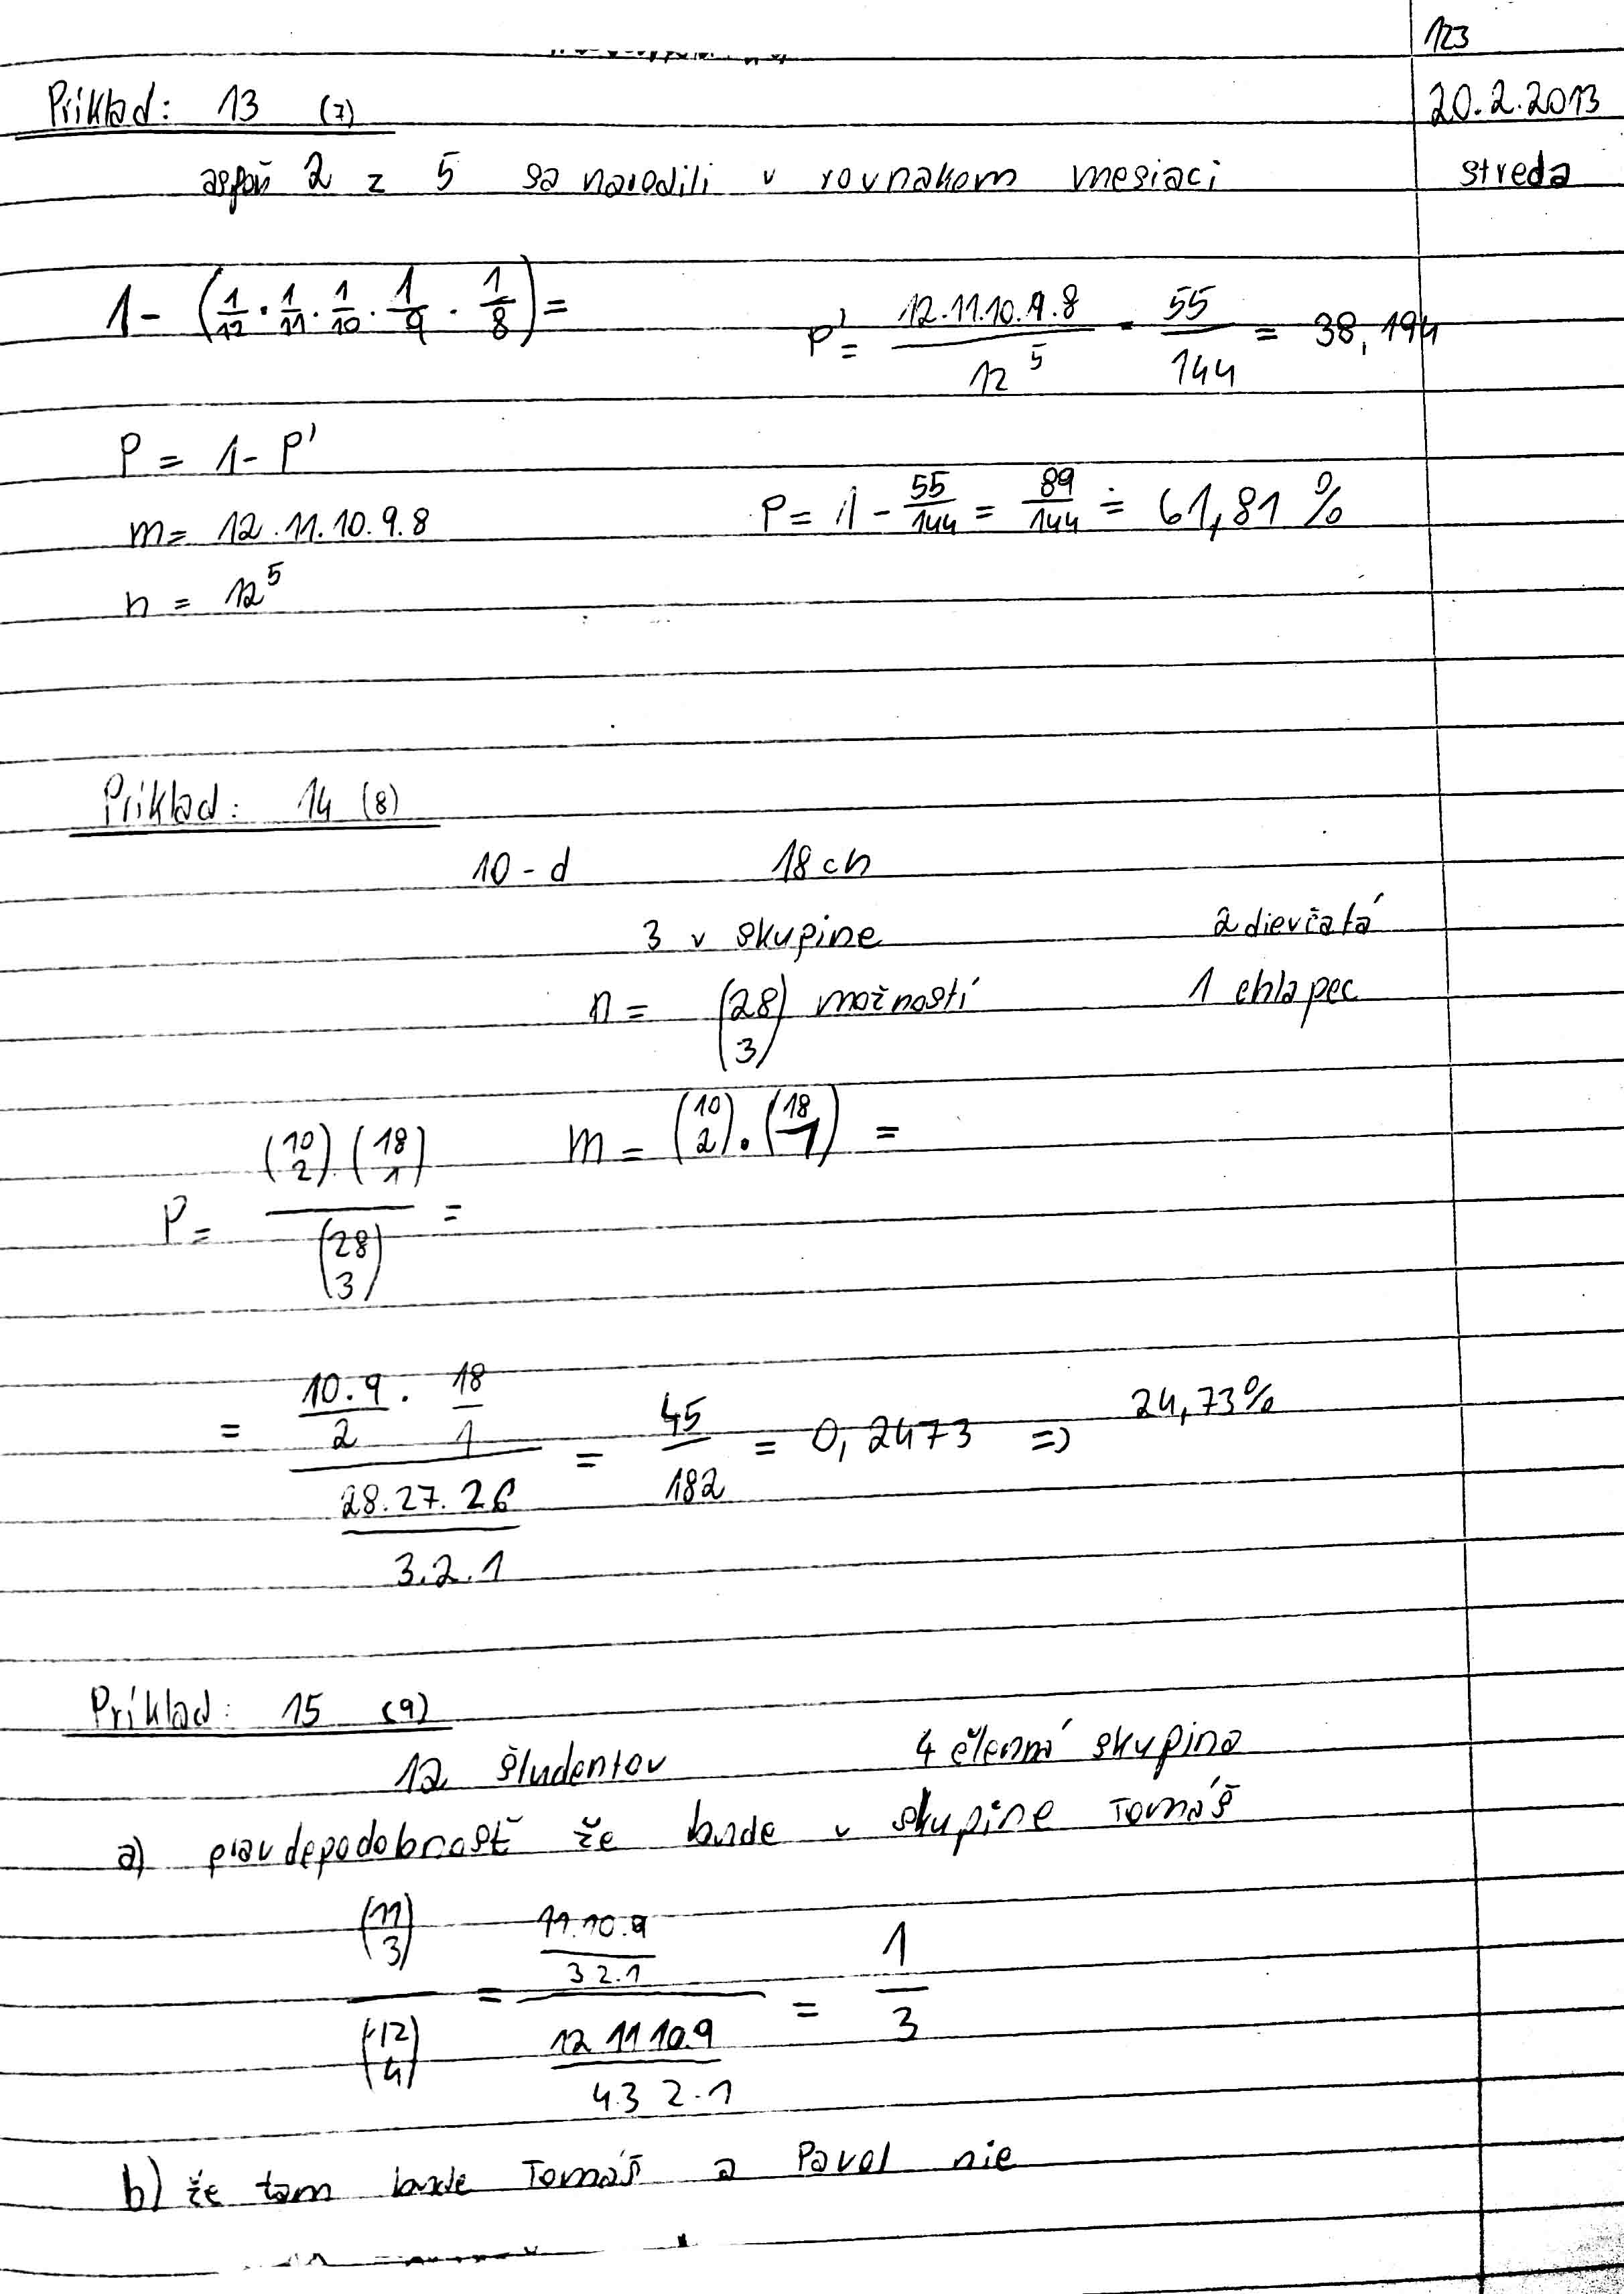 123
Príklad: 13 (7)
20.2.2013
aspoň 2 z 5 sa narodili v rovnakom mesiaci
streda
1 - (1/12 · 1/11 · 1/10 · 1/9 · 1/8) =
P' = 12.11.10.9.8 / 12^5 = 55/144 = 38,194
P = 1 - P'
m = 12.11.10.9.8
P = 1 - 55/144 = 89/144 ≐ 61,81 %
n = 12^5
Príklad: 14 (8)
10 - d 18 ch
3 v skupine 2 dievčatá
n = (28 3) možností 1 chlapec
P = (10 2).(18 1) / (28 3) =
m = (10 2).(18 1) =
= 10.9/2 . 18/1 / 28.27.26/3.2.1 = 45/182 = 0,2473 => 24,73%
Príklad: 15 (9)
12 študentov 4 členná skupina
a) pravdepodobnosť že bude v skupine Tomáš
(11 3) / (12 4) = 11.10.9/3 2.1 / 12 11 10.9/4.3 2.1 = 1/3
b) že tam bude Tomáš a Pavol nie